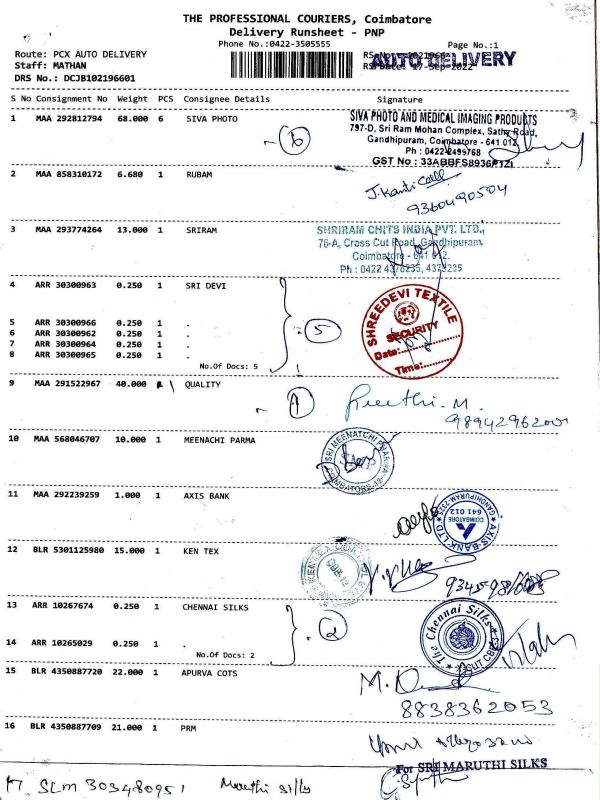 THE PROFESSIONAL COURIERS, Coimbatore
Delivery Runsheet - PNP
Phone No.:0422-3505555
Page No.:1
Route: PCX AUTO DELIVERY
AUTO DELIVERY
Staff: MATHAN
RS Date: 17-Sep-2022
DRS No.: DCJB102196601
S No Consignment No Weight PCS Consignee Details Signature
1 MAA 292812794 68.000 6 SIVA PHOTO
6
SIVA PHOTO AND MEDICAL IMAGING PRODUCTS
797-D, Sri Ram Mohan Complex, Sathy Road,
Gandhipuram, Coimbatore - 641 012
Ph : 0422-2499768
GST No : 33ABBFS8936P1ZI
2 MAA 858310172 6.680 1 RUBAM
9360490504
3 MAA 293774264 13.000 1 SRIRAM
SHRIRAM CHITS INDIA PVT. LTD.,
76-A, Cross Cut Road, Gandhipuram,
Coimbatore - 641 012.
Ph : 0422 4376235, 4378235
4 ARR 30300963 0.250 1 SRI DEVI
5 ARR 30300966 0.250 1 .
6 ARR 30300962 0.250 1 .
7 ARR 30300964 0.250 1 .
8 ARR 30300965 0.250 1 .
No.Of Docs: 5
5
SHREEDEVI TEXTILE
SECURITY
Date:
Time:
9 MAA 291522967 40.000 1 QUALITY
1
Preethi. M.
10 MAA 568046707 10.000 1 MEENACHI PARMA
SRI MEENATCHI PHARMA
COIMBATORE-12
11 MAA 292239259 1.000 1 AXIS BANK
AXIS-BANK LTD
GANDHIPURAM
COIMBATORE
641 012
12 BLR 5301125980 15.000 1 KEN TEX
13 ARR 10267674 0.250 1 CHENNAI SILKS
14 ARR 10265029 0.250 1 .
No.Of Docs: 2
2
The Chennai Silks
15 BLR 4350887720 22.000 1 APURVA COTS
8838362053
16 BLR 4350887709 21.000 1 PRM
For SRI MARUTHI SILKS
17 SLM 303480951 Maruthi silks